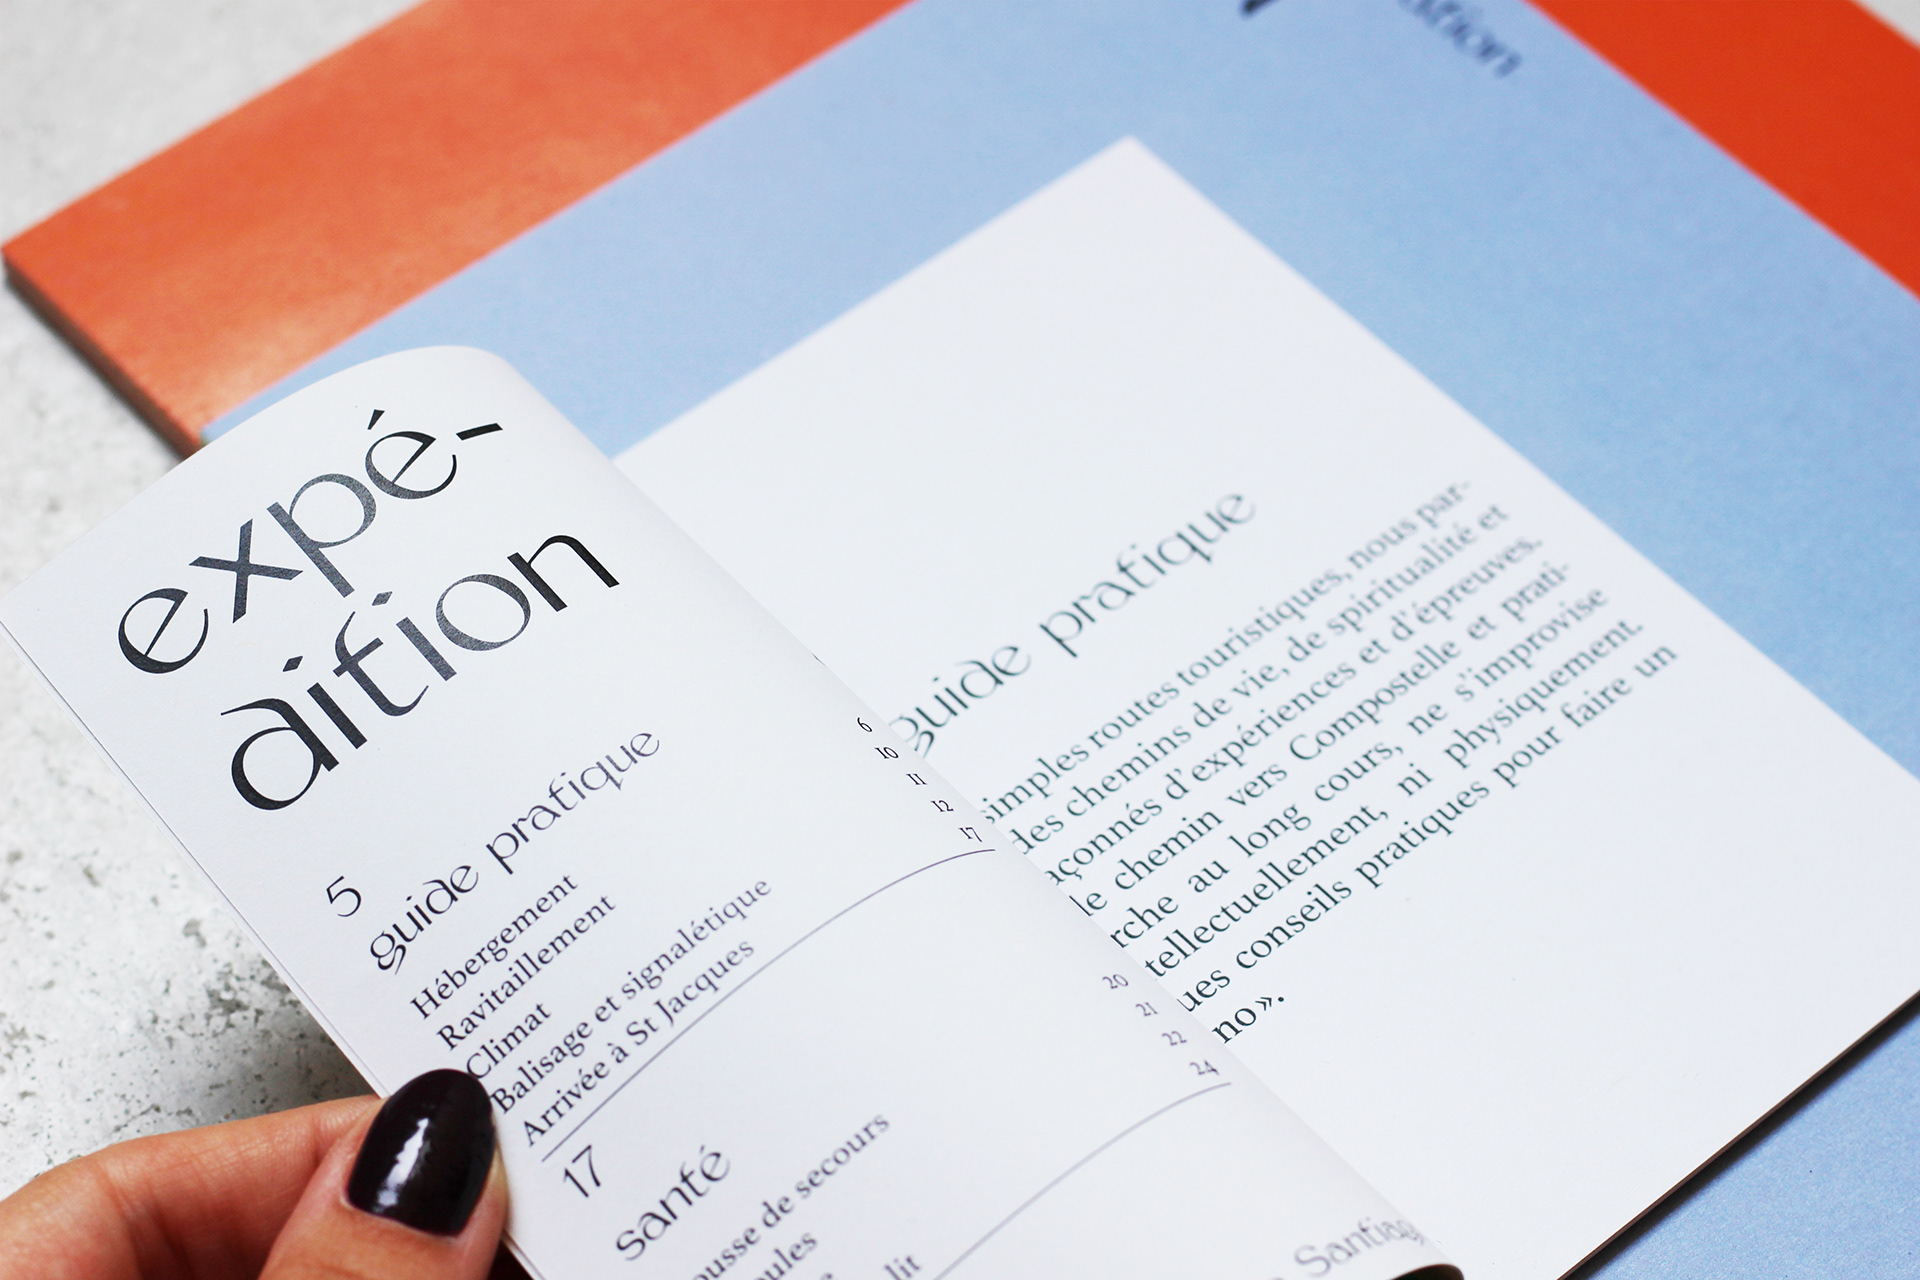 expé-
dition
5
guide pratique
Hébergement 6
Ravitaillement 10
Climat 11
Balisage et signalétique 12
Arrivée à St Jacques 17
17
santé
20
de secours 21
22
lit 24
Santiago
guide pratique
simples routes touristiques, nous par-
des chemins de vie, de spiritualité et
açonnés d'expériences et d'épreuves.
le chemin vers Compostelle et prati-
rche au long cours, ne s'improvise
tellectuellement, ni physiquement.
ues conseils pratiques pour faire un
no».